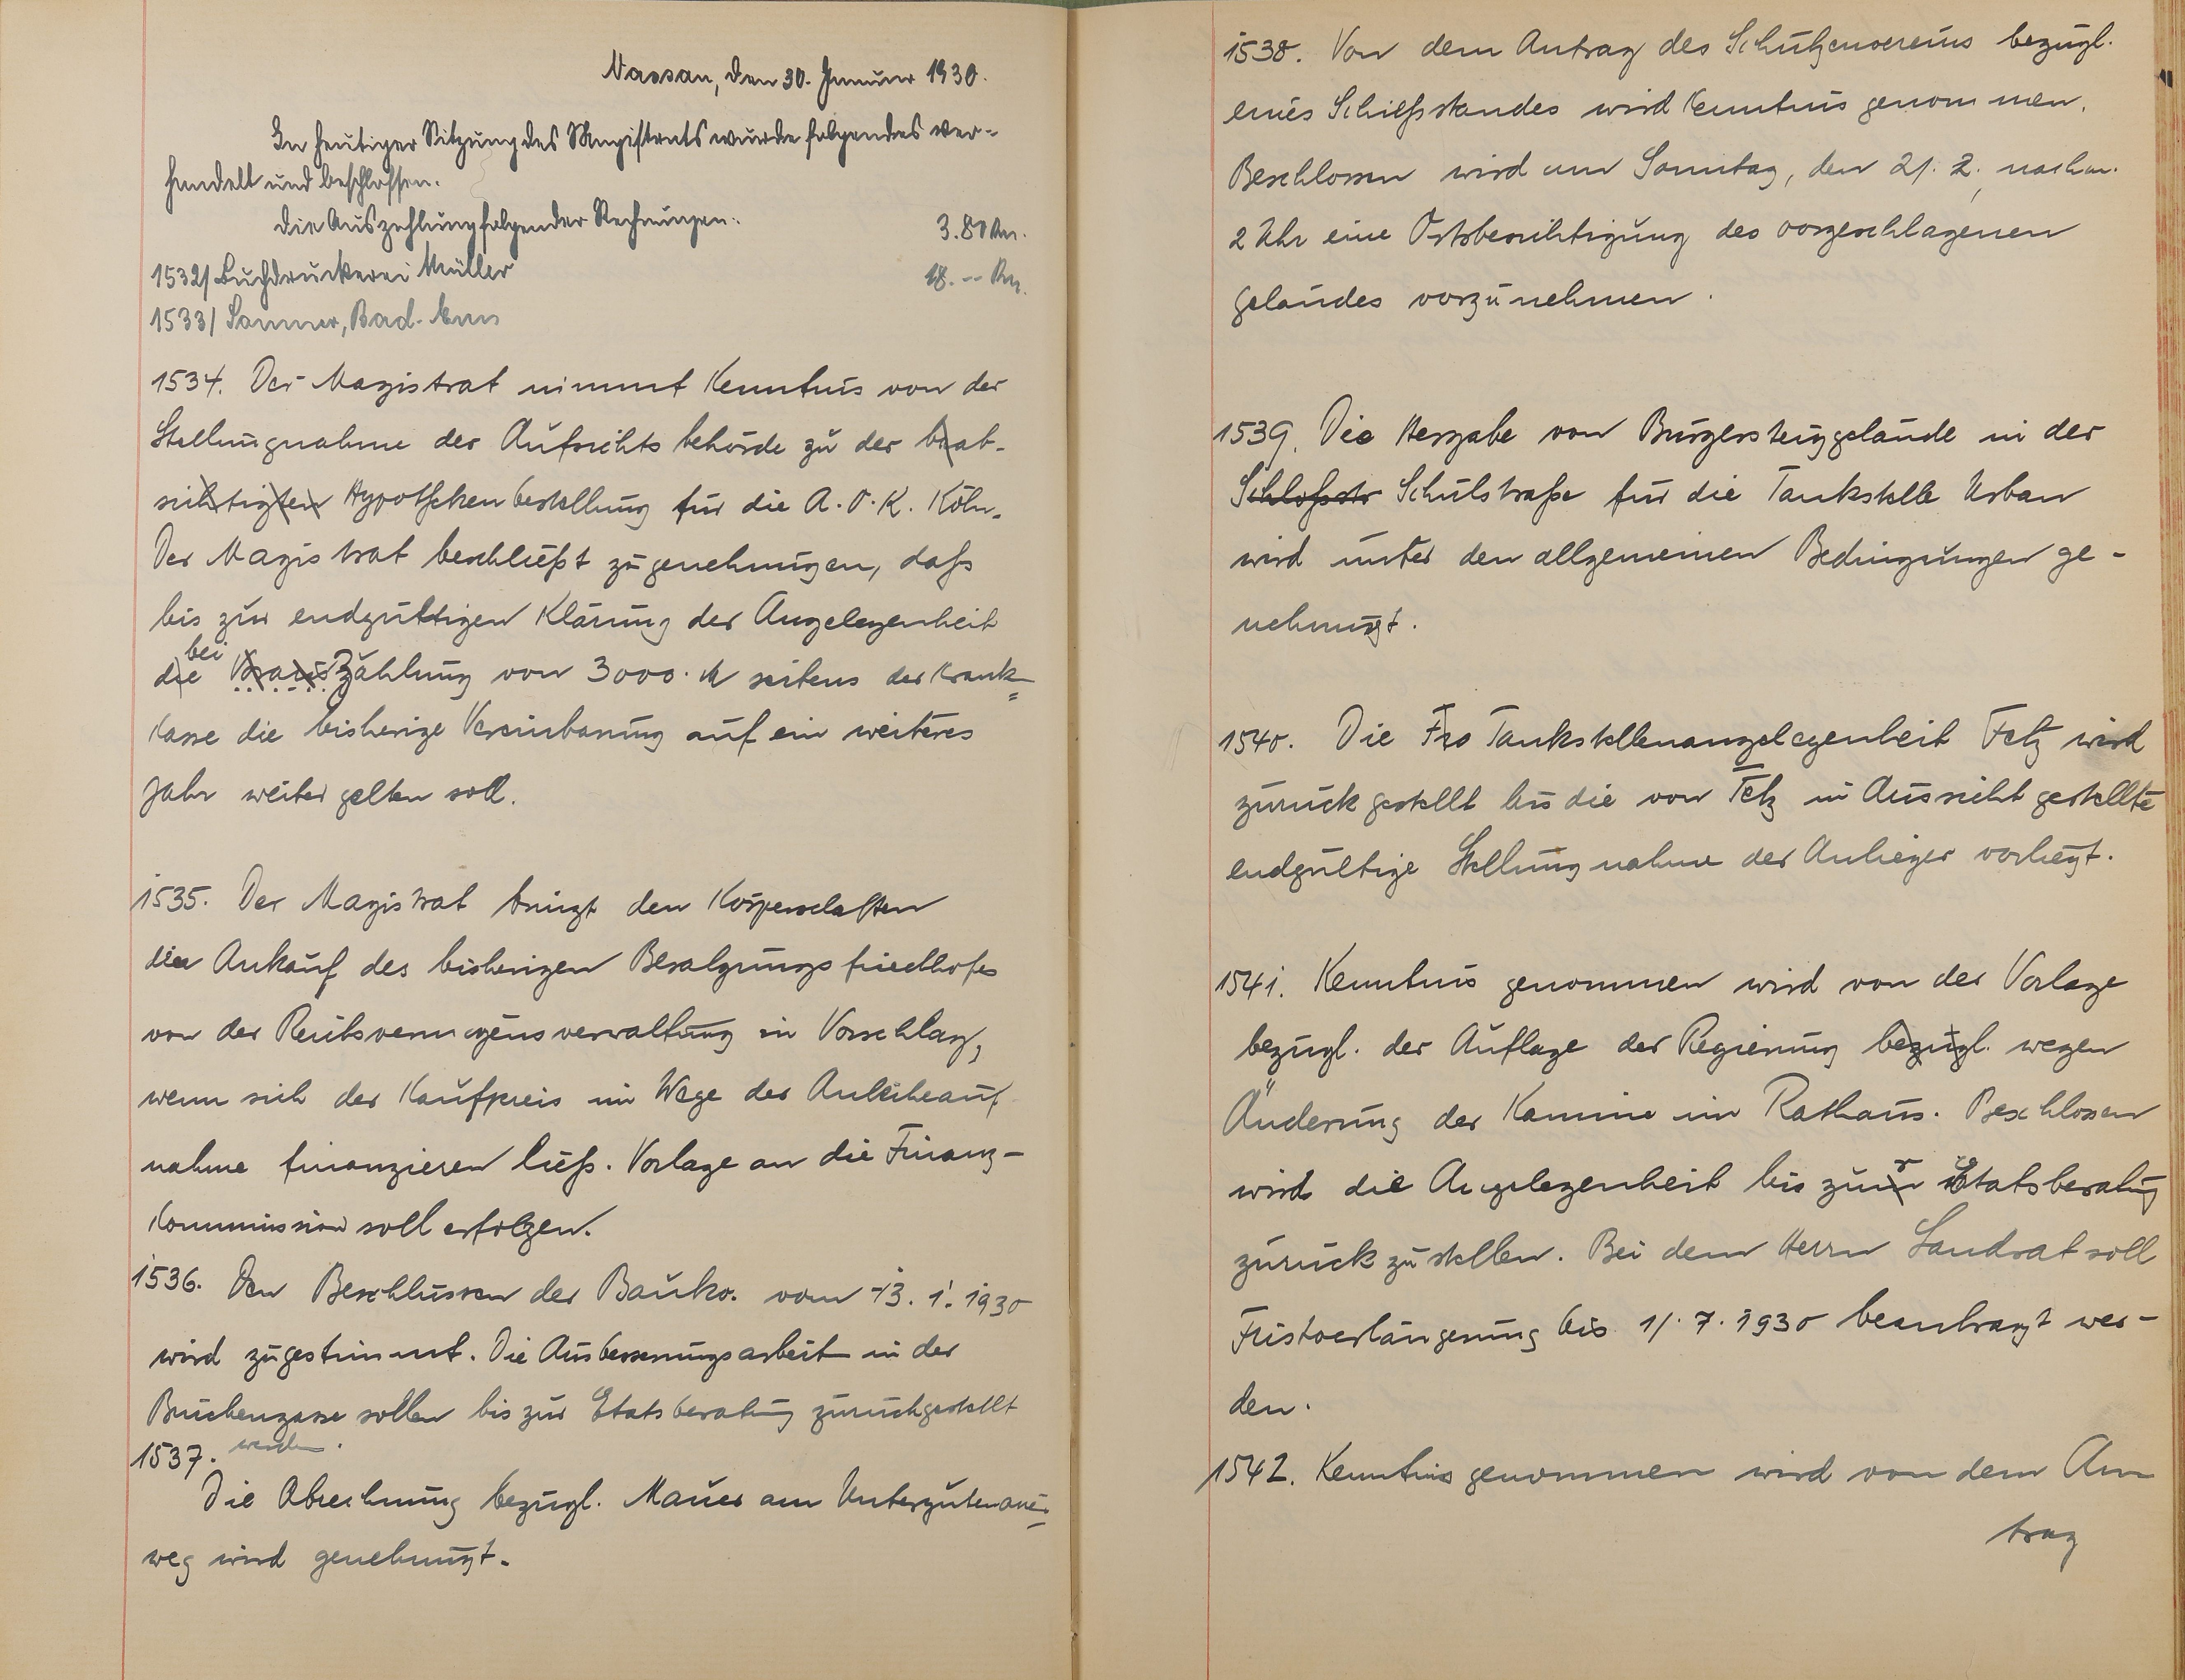 Nassau, den 30. Januar 1930.
In heutiger Sitzung des Magistrats wurde folgendes ver-
handelt und beschlossen.
Die Auszahlung folgender Rechnungen:
1532/ Buchdruckerei Müller 3.80 Rm.
1533/ Sommer, Bad-Ems 18.-- Rm.
1534. Der Magistrat nimmt Kenntnis von der
Stellungnahme der Aufsichtsbehörde zu der beab-
sichtigten Hypothekenbestellung für die A.O.K. Köln.
Der Magistrat beschließt zu genehmigen, daß
bis zur endgültigen Klärung der Angelegenheit
bei
die Vorauszahlung von 3000.M seitens der Krank=
kasse die bisherige Vereinbarung auf ein weiteres
Jahr weiter gelten soll.
1535. Der Magistrat bringt den Körperschaften
den Ankauf des bisherigen Besatzungsfriedhofes
von der Reichsvermögensverwaltung in Vorschlag,
wenn sich der Kaufpreis im Wege der Anleiheauf
nahme finanzieren ließ. Vorlage an die Finanz-
kommission soll erfolgen.
1536. Den Beschlüssen der Bauko. vom 13. 1. 1930
wird zugestimmt. Die Ausbesserungsarbeit in der
Bruchengasse sollen bis zur Etatsberatung zurückgestellt
werden.
1537.
Die Abrechnung bezügl. Mauer am Unterguttenauer=
weg wird genehmigt.
1538. Von dem Antrag des Schützenvereins bezügl.
eines Schießstandes wird Kenntnis genommen.
Beschlossen wird am Sonntag, den 2/. 2., nachm.
2 Uhr eine Ortsbesichtigung des vorgeschlagenen
Geländes vorzunehmen.
1539. Die Hergabe von Bürgersteiggelände in der
Schloßstr Schulstraße für die Tankstelle Urban
wird unter den allgemeinen Bedingungen ge-
nehmigt.
1540. Die Tankstellenangelegenheit Fetz wird
zurückgestellt bis die von Fetz in Aussicht gestellte
endgültige Stellungnahme der Anlieger vorliegt.
1541. Kenntnis genommen wird von der Vorlage
bezügl. der Auflage der Regierung bezügl. wegen
Änderung der Kamine im Rathaus. Beschlossen
wird die Angelegenheit bis zur Etatsberatung
zurückzustellen. Bei dem Herrn Landrat soll
Fristverlängerung bis 1/. 7. 1930 beantragt wer-
den.
1542. Kenntnis genommen wird von dem An
trag